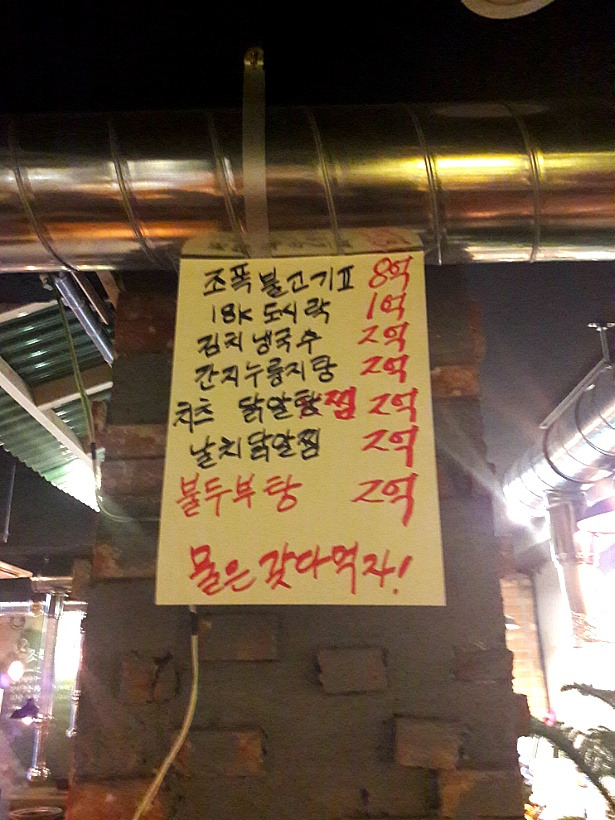 조폭불고기Ⅱ 8억
18K 도시락 1억
김치냉국수 2억
간지누룽지탕 2억
치즈 닭알찜 2억
날치닭알찜 2억
불두부탕 2억
물은 갖다먹자!